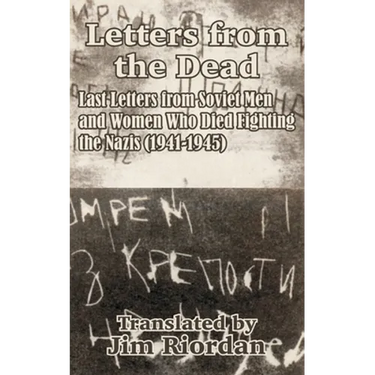 Letters from
the Dead
Last Letters from Soviet Men
and Women Who Died Fighting
the Nazis (1941-1945)
УМРЕМ
З КРЕПОСТИ
Translated by
Jim Riordan